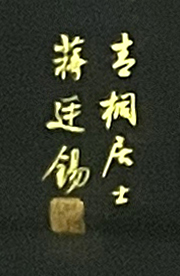 青桐居士
蔣廷錫